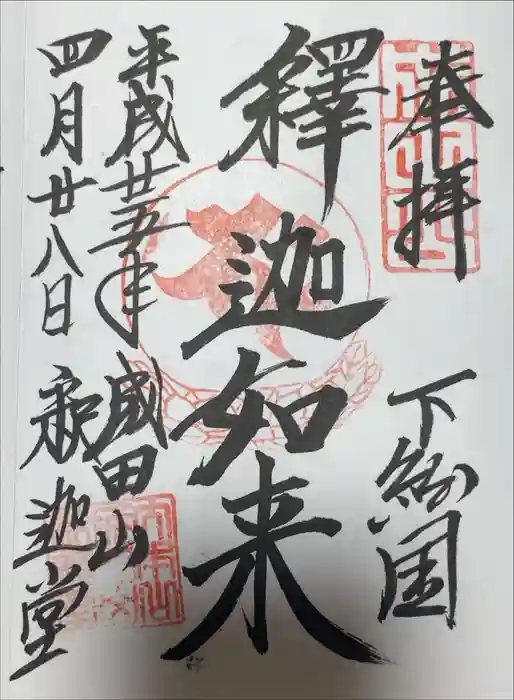 奉拝 下総国
釋迦如来
平成廿五年 成田山
四月廿八日 釈迦堂